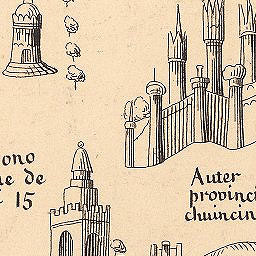 ono
ue de
r 15
Auter
provinci
chuincin